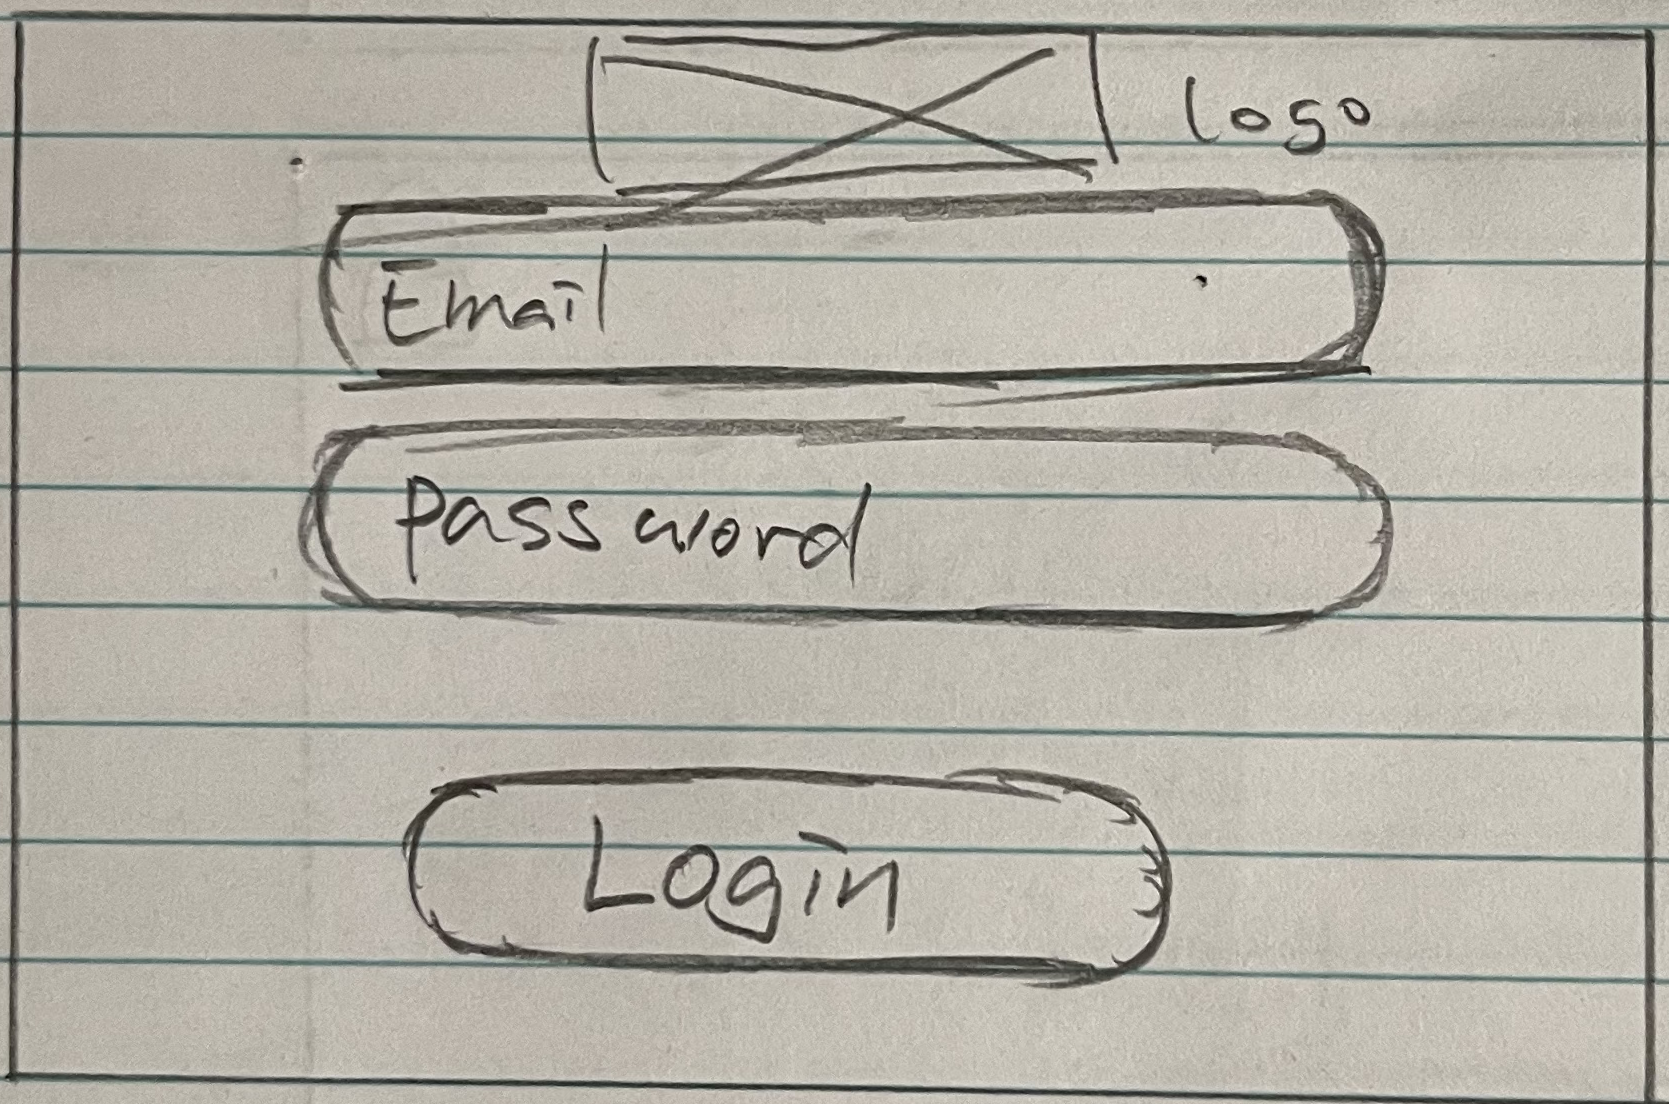 logo
Email
Password
Login